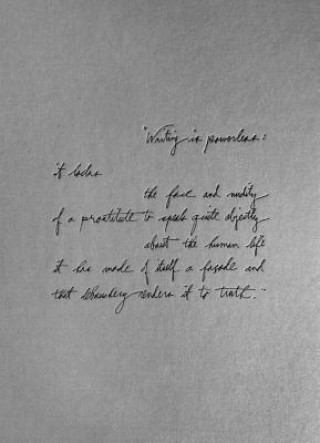 "Writing is powerless:
it lacks
the face and nudity
of a prostitute to speak quite objectively
about the human life
it has made of itself a façade and
that renders it to truth."